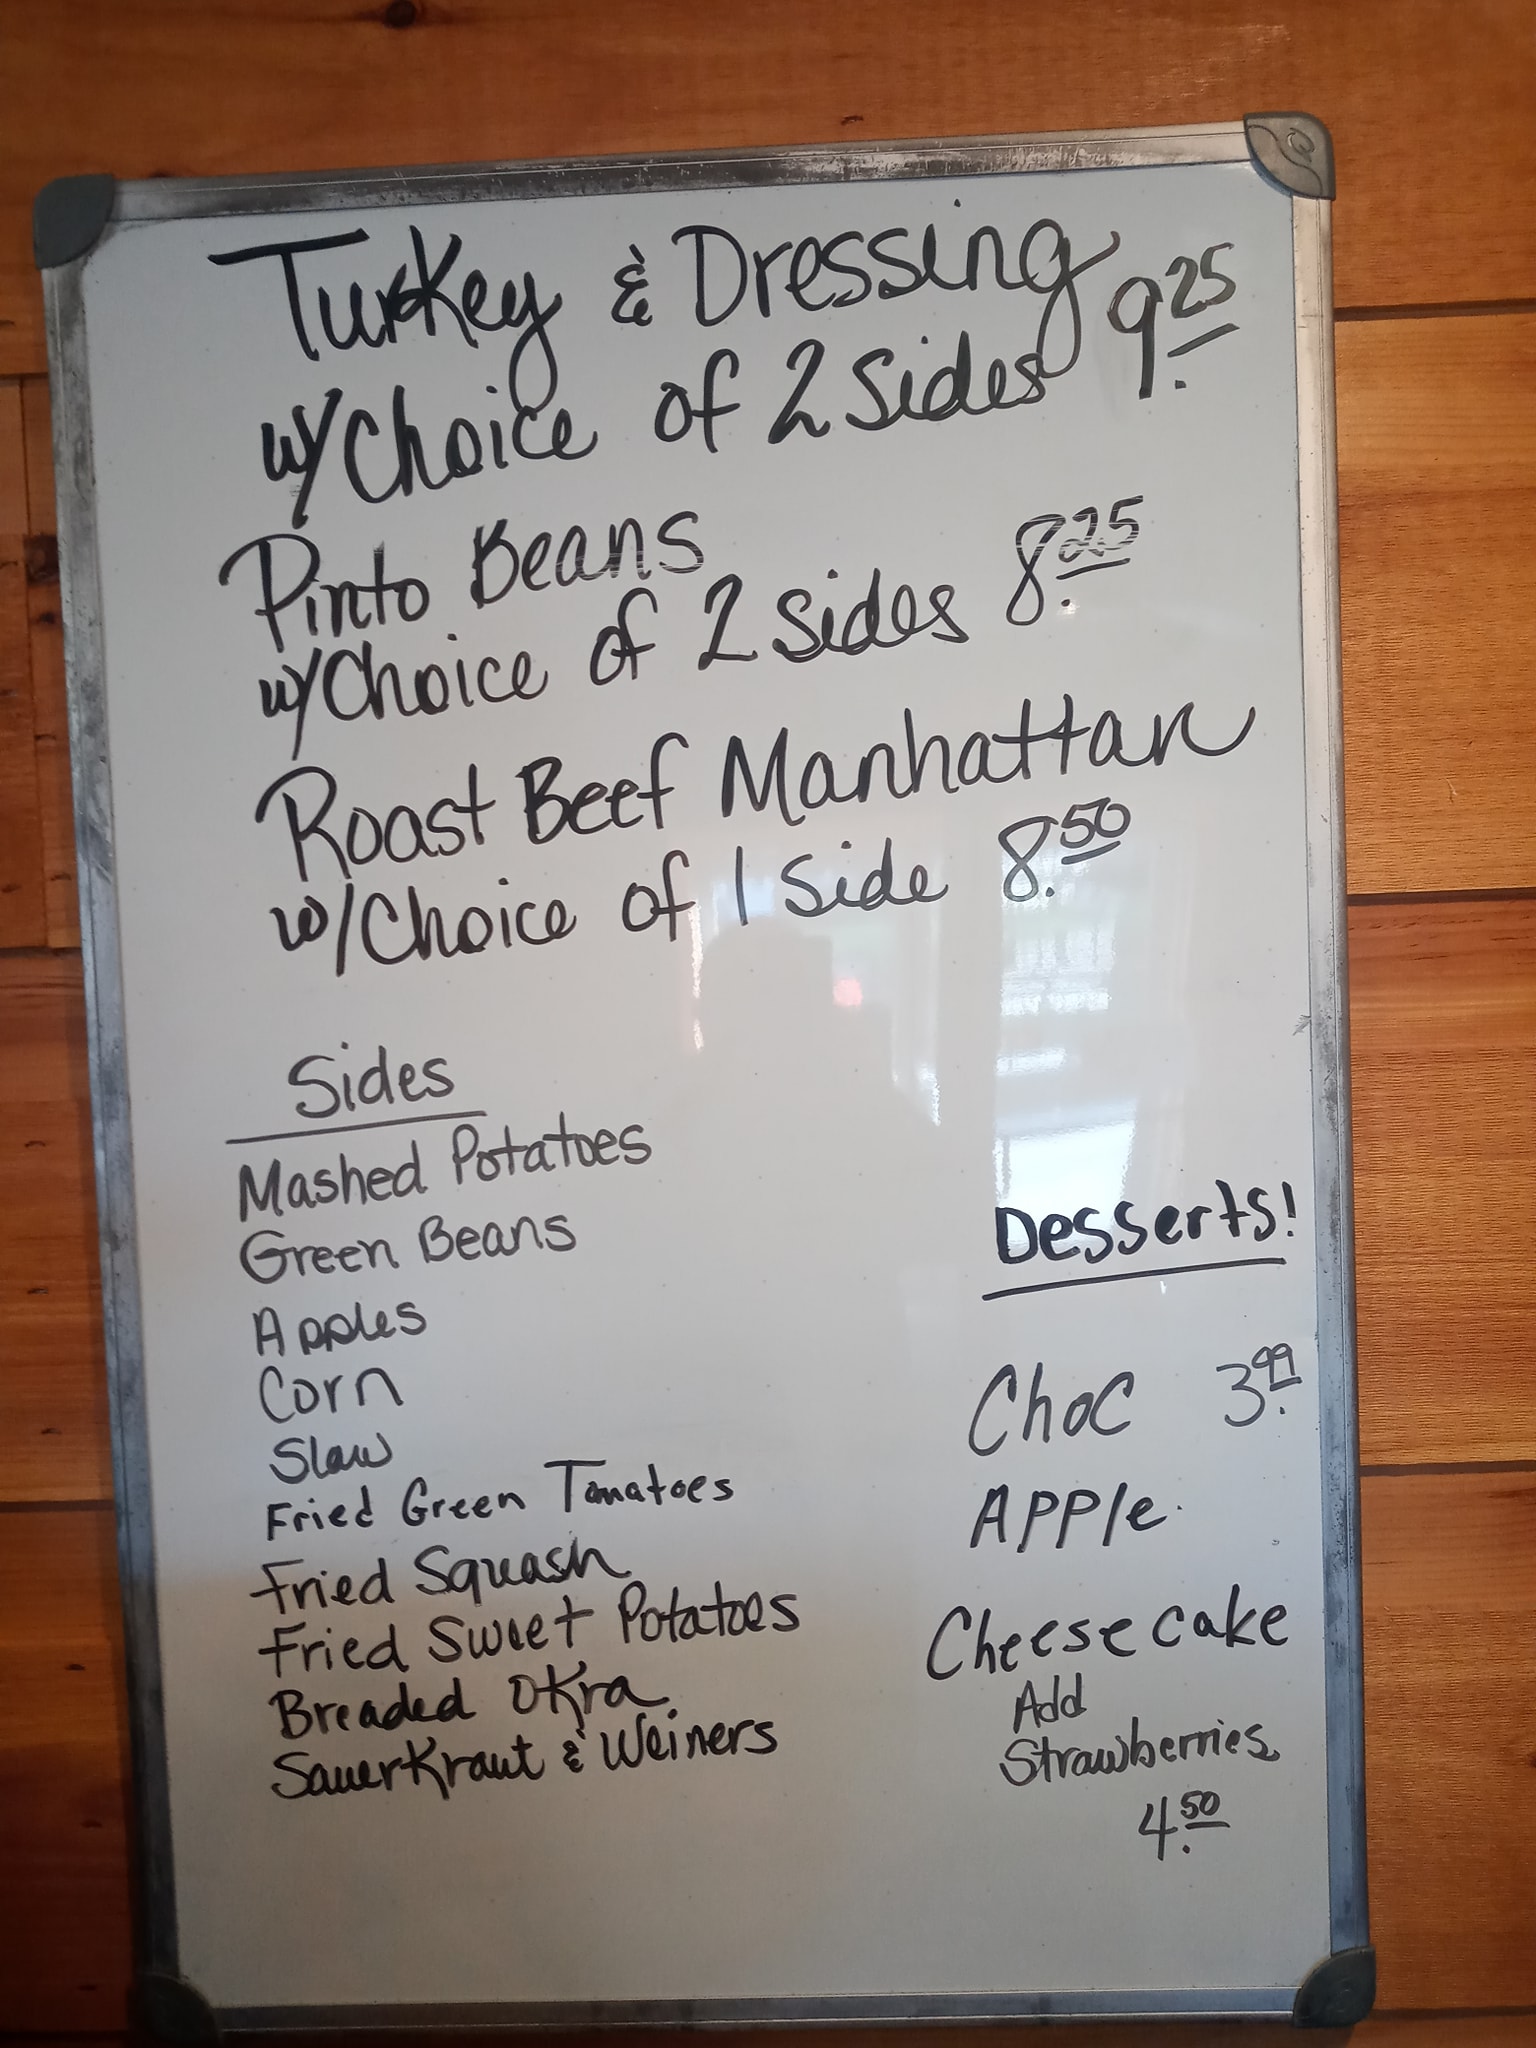 Turkey & Dressing
w/Choice of 2 Sides 9.25
Pinto Beans
w/Choice of 2 Sides 8.25
Roast Beef Manhattan
w/Choice of 1 Side 8.50
Sides
Mashed Potatoes
Green Beans
Apples
Corn
Slaw
Fried Green Tomatoes
Fried Squash
Fried Sweet Potatoes
Breaded Okra
SauerKraut & Weiners
Desserts!
Choc 3.99
Apple
Cheesecake
Add
Strawberries
4.50